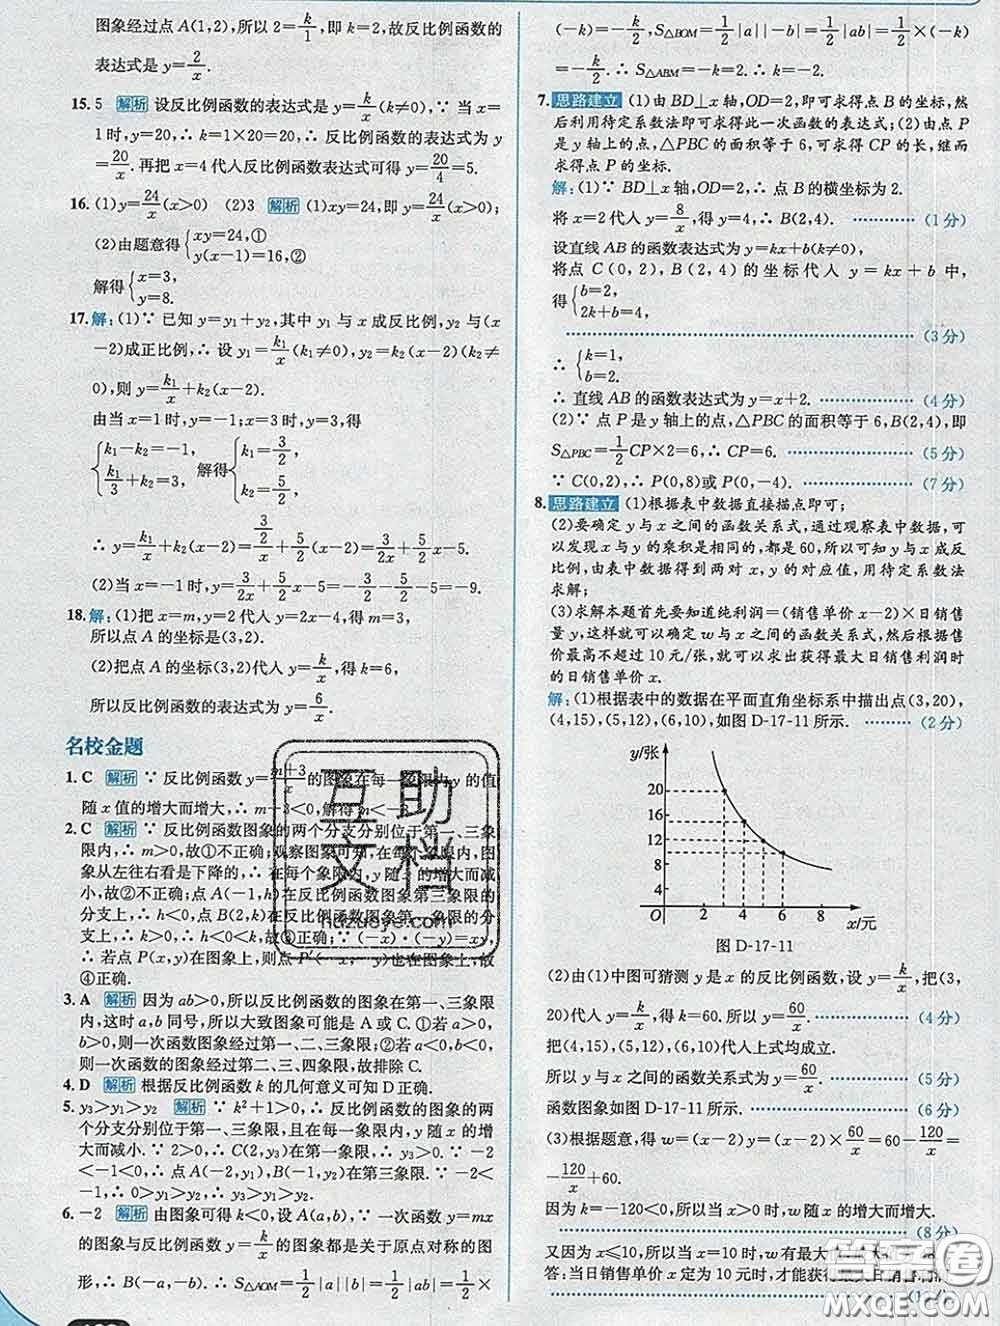 图象经过点 A(1,2),所以 2=k/1,即 k=2,故反比例函数的
表达式是 y=2/x.
15. 5 解析 设反比例函数的表达式是 y=k/x(k≠0),∵ 当 x=
1时,y=20,∴ k=1×20=20,∴ 反比例函数的表达式为 y=
20/x.再把 x=4 代入反比例函数表达式可得 y=20/4=5.
16. (1)y=24/x(x>0) (2)3 解析 (1)xy=24,即 y=24/x(x>0);
(2)由题意得{xy=24,①
y(x-1)=16,②
解得{x=3,
y=8.
17. 解:(1)∵ 已知 y=y₁+y₂,其中 y₁ 与 x 成反比例,y₂ 与(x
-2)成正比例,∴ 设 y₁=k₁/x(k₁≠0),y₂=k₂(x-2)(k₂≠
0),则 y=k₁/x+k₂(x-2).
由当 x=1 时,y=-1;x=3 时,y=3,得
{k₁-k₂=-1,
k₁/3+k₂=3, 解得{k₁=3/2,
k₂=5/2,
∴ y=k₁/x+k₂(x-2)=(3/2)/x+5/2(x-2)=3/2x+5/2x-5.
(2)当 x=-1 时,y=3/2x+5/2x-5=-3/2-5/2-5=-9.
18. 解:(1)把 x=m,y=2 代入 y=2x-4,得 m=3,
所以点 A 的坐标是(3,2).
(2)把点 A 的坐标(3,2)代入 y=k/x,得 k=6,
所以反比例函数的表达式为 y=6/x.
名校金题
1. C 解析 ∵ 反比例函数 y=m+3/x的图象在每一象限内 y 的值
随 x 值的增大而增大,∴ m+3<0,解得 m<-3.
2. C 解析 ∵ 反比例函数图象的两个分支分别位于第一、三象
限内,∴ m>0,故①不正确;观察图象可知,在每个象限内,图
象从左往右看是下降的,∴ 在每个象限内,y 随 x 的增大而减
小,故②不正确;点 A(-1,h)在反比例函数图象第三象限的
分支上,∴ h<0,点 B(2,k)在反比例函数图象第一象限的分
支上,∴ k>0,∴ h<0<k,故③正确;∵ (-x)·(-y)=xy,
∴ 若点 P(x,y)在图象上,则点 P′(-x,-y)也在图象上,故
④正确.
3. A 解析 因为 ab>0,所以反比例函数的图象在第一、三象限
内,这时 a,b 同号,所以大致图象可能是 A 或 C.①若 a>0,
b>0,则一次函数的图象经过第一、二、三象限;②若 a<0,b<
0,则一次函数的图象经过第二、三、四象限,故排除 C.
4. D 解析 根据反比例函数 k 的几何意义可知 D 正确.
5. y₃>y₁>y₂ 解析 ∵ k²+1>0,∴ 反比例函数的图象的两
个分支分别位于第一、三象限,且在每一象限内,y 随 x 的增
大而减小.∵ 2>0,∴ C(2,y₃)在第一象限,∴ y₃>0.∵ -2
<-1<0,∴ 点 A(-2,y₁),B(-1,y₂)在第三象限.∵ -2<
-1,∴ 0>y₁>y₂,∴ y₃>y₁>y₂.
6. -2 解析 由图象可得 k<0,设 A(a,b),∵ 一次函数 y=mx
的图象与反比例函数 y=k/x的图象都是关于原点对称的图
形,∴ B(-a,-b),∴ S△AOM=1/2|a||b|=1/2|ab|=1/2×
(-k)=-k/2,S△BOM=1/2|a||-b|=1/2|ab|=1/2×(-k)
=-k/2.∴ S△ABM=-k=2.∴ k=-2.
7. 思路建立 (1)由 BD⊥x 轴,OD=2,即可求得点 B 的坐标,然
后利用待定系数法即可求得此一次函数的表达式;(2)由点 P
是 y 轴上的点,△PBC 的面积等于 6,可求得 CP 的长,继而
求得点 P 的坐标.
解:(1)∵ BD⊥x 轴,OD=2,∴ 点 B 的横坐标为 2.
将 x=2 代入 y=8/x,得 y=4,∴ B(2,4). ………… (1 分)
设直线 AB 的函数表达式为 y=kx+b(k≠0),
将点 C(0,2),B(2,4)的坐标代入 y=kx+b 中,
得{b=2,
2k+b=4,
………… (3 分)
∴ {k=1,
b=2.
∴ 直线 AB 的函数表达式为 y=x+2. ………… (4 分)
(2)∵ 点 P 是 y 轴上的点,△PBC 的面积等于 6,B(2,4),即
S△PBC=1/2CP×2=6,∴ CP=6. ………… (5 分)
∵ C(0,2),∴ P(0,8)或 P(0,-4). ………… (7 分)
8. 思路建立 (1)根据表中数据直接描点即可;
(2)要确定 y 与 x 之间的函数关系式,通过观察表中数据,可
以发现 x 与 y 的乘积是相同的,都是 60,所以可知 y 与 x 成反
比例,由表中数据得到两对 x,y 的对应值,用待定系数法
求解;
(3)求解本题首先要知道纯利润=(销售单价 x-2)×日销售
量 y,这样就可以确定 w 与 x 之间的函数关系式,然后根据售
价最高不超过 10 元/张,就可以求出获得最大日销售利润时
的日销售单价 x.
解:(1)根据表中的数据在平面直角坐标系中描出点(3,20),
(4,15),(5,12),(6,10),如图 D-17-11 所示. ……… (2 分)
y/张
20
16
12
8
4
O 2 4 6 8 x/元
图 D-17-11
(2)由(1)中图可猜测 y 是 x 的反比例函数,设 y=k/x,把(3,
20)代入 y=k/x,得 k=60.所以 y=60/x. ………… (4 分)
把(4,15),(5,12),(6,10)代入上式均成立.
所以 y 与 x 之间的函数关系式为 y=60/x. ………… (5 分)
函数图象如图 D-17-11 所示. ………… (6 分)
(3)根据题意,得 w=(x-2)y=(x-2)×60/x=60-120/x=
-120/x+60.
因为 k=-120<0,所以当 x>0 时,w 随 x 的增大而增大.
………… (8 分)
又因为 x≤10,所以当 x=10 时,w 有最大
答:当日销售单价 x 定为 10 元时,才能获得最大日销售利润.
互助
文档
huzuoye.com
答案圈
MXQE.COM